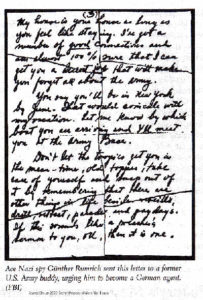 (3)
My house is your house as long as
you feel like staying. I've got a
number of good connections and
am almost 100% sure that I can
get you a that will make
you forget all about the army.
You say you'll be in New York
by June. That would coincide with
my vacation. Let me know by which
boat you are arriving and I'll meet
you at the Army Base.
Don't let the tropics get you in
the mean-time, old topper, take
care of yourself, and keep out
of it by remembering that there are
other things in life besides reveille
drill retreat, parades and paydays.
If this sounds like a
sermon to you, ok, then it is one.
Ace Nazi spy Günther Rumrich sent this letter to a former
U.S. Army buddy, urging him to become a German agent.
(FBI)